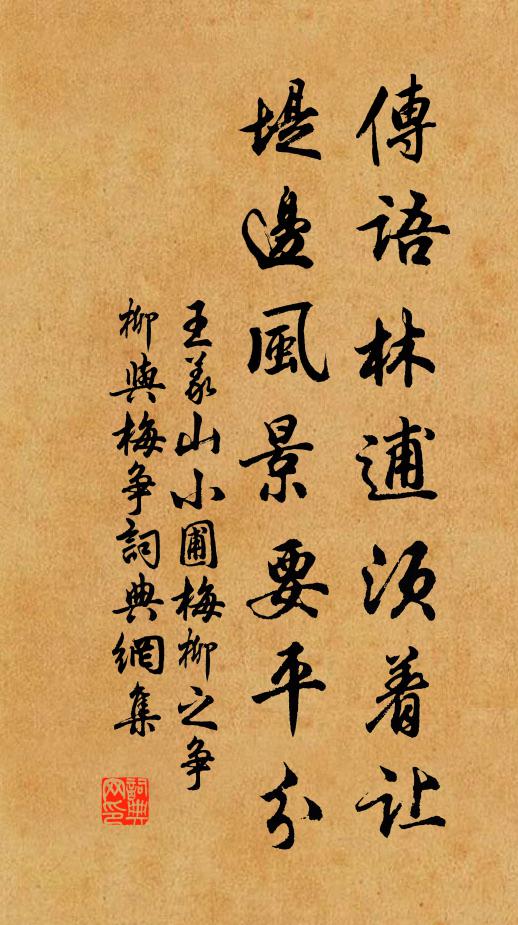 傳語林逋須着让
堤邊風景要平分
王義山小圃梅柳之争
柳與梅争詞典網集
詞典网印